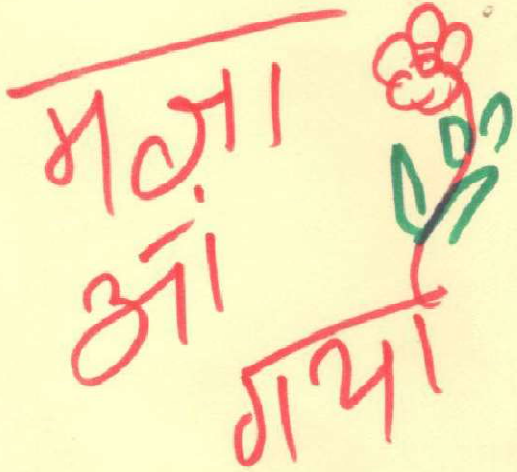 मजा
आ
गया